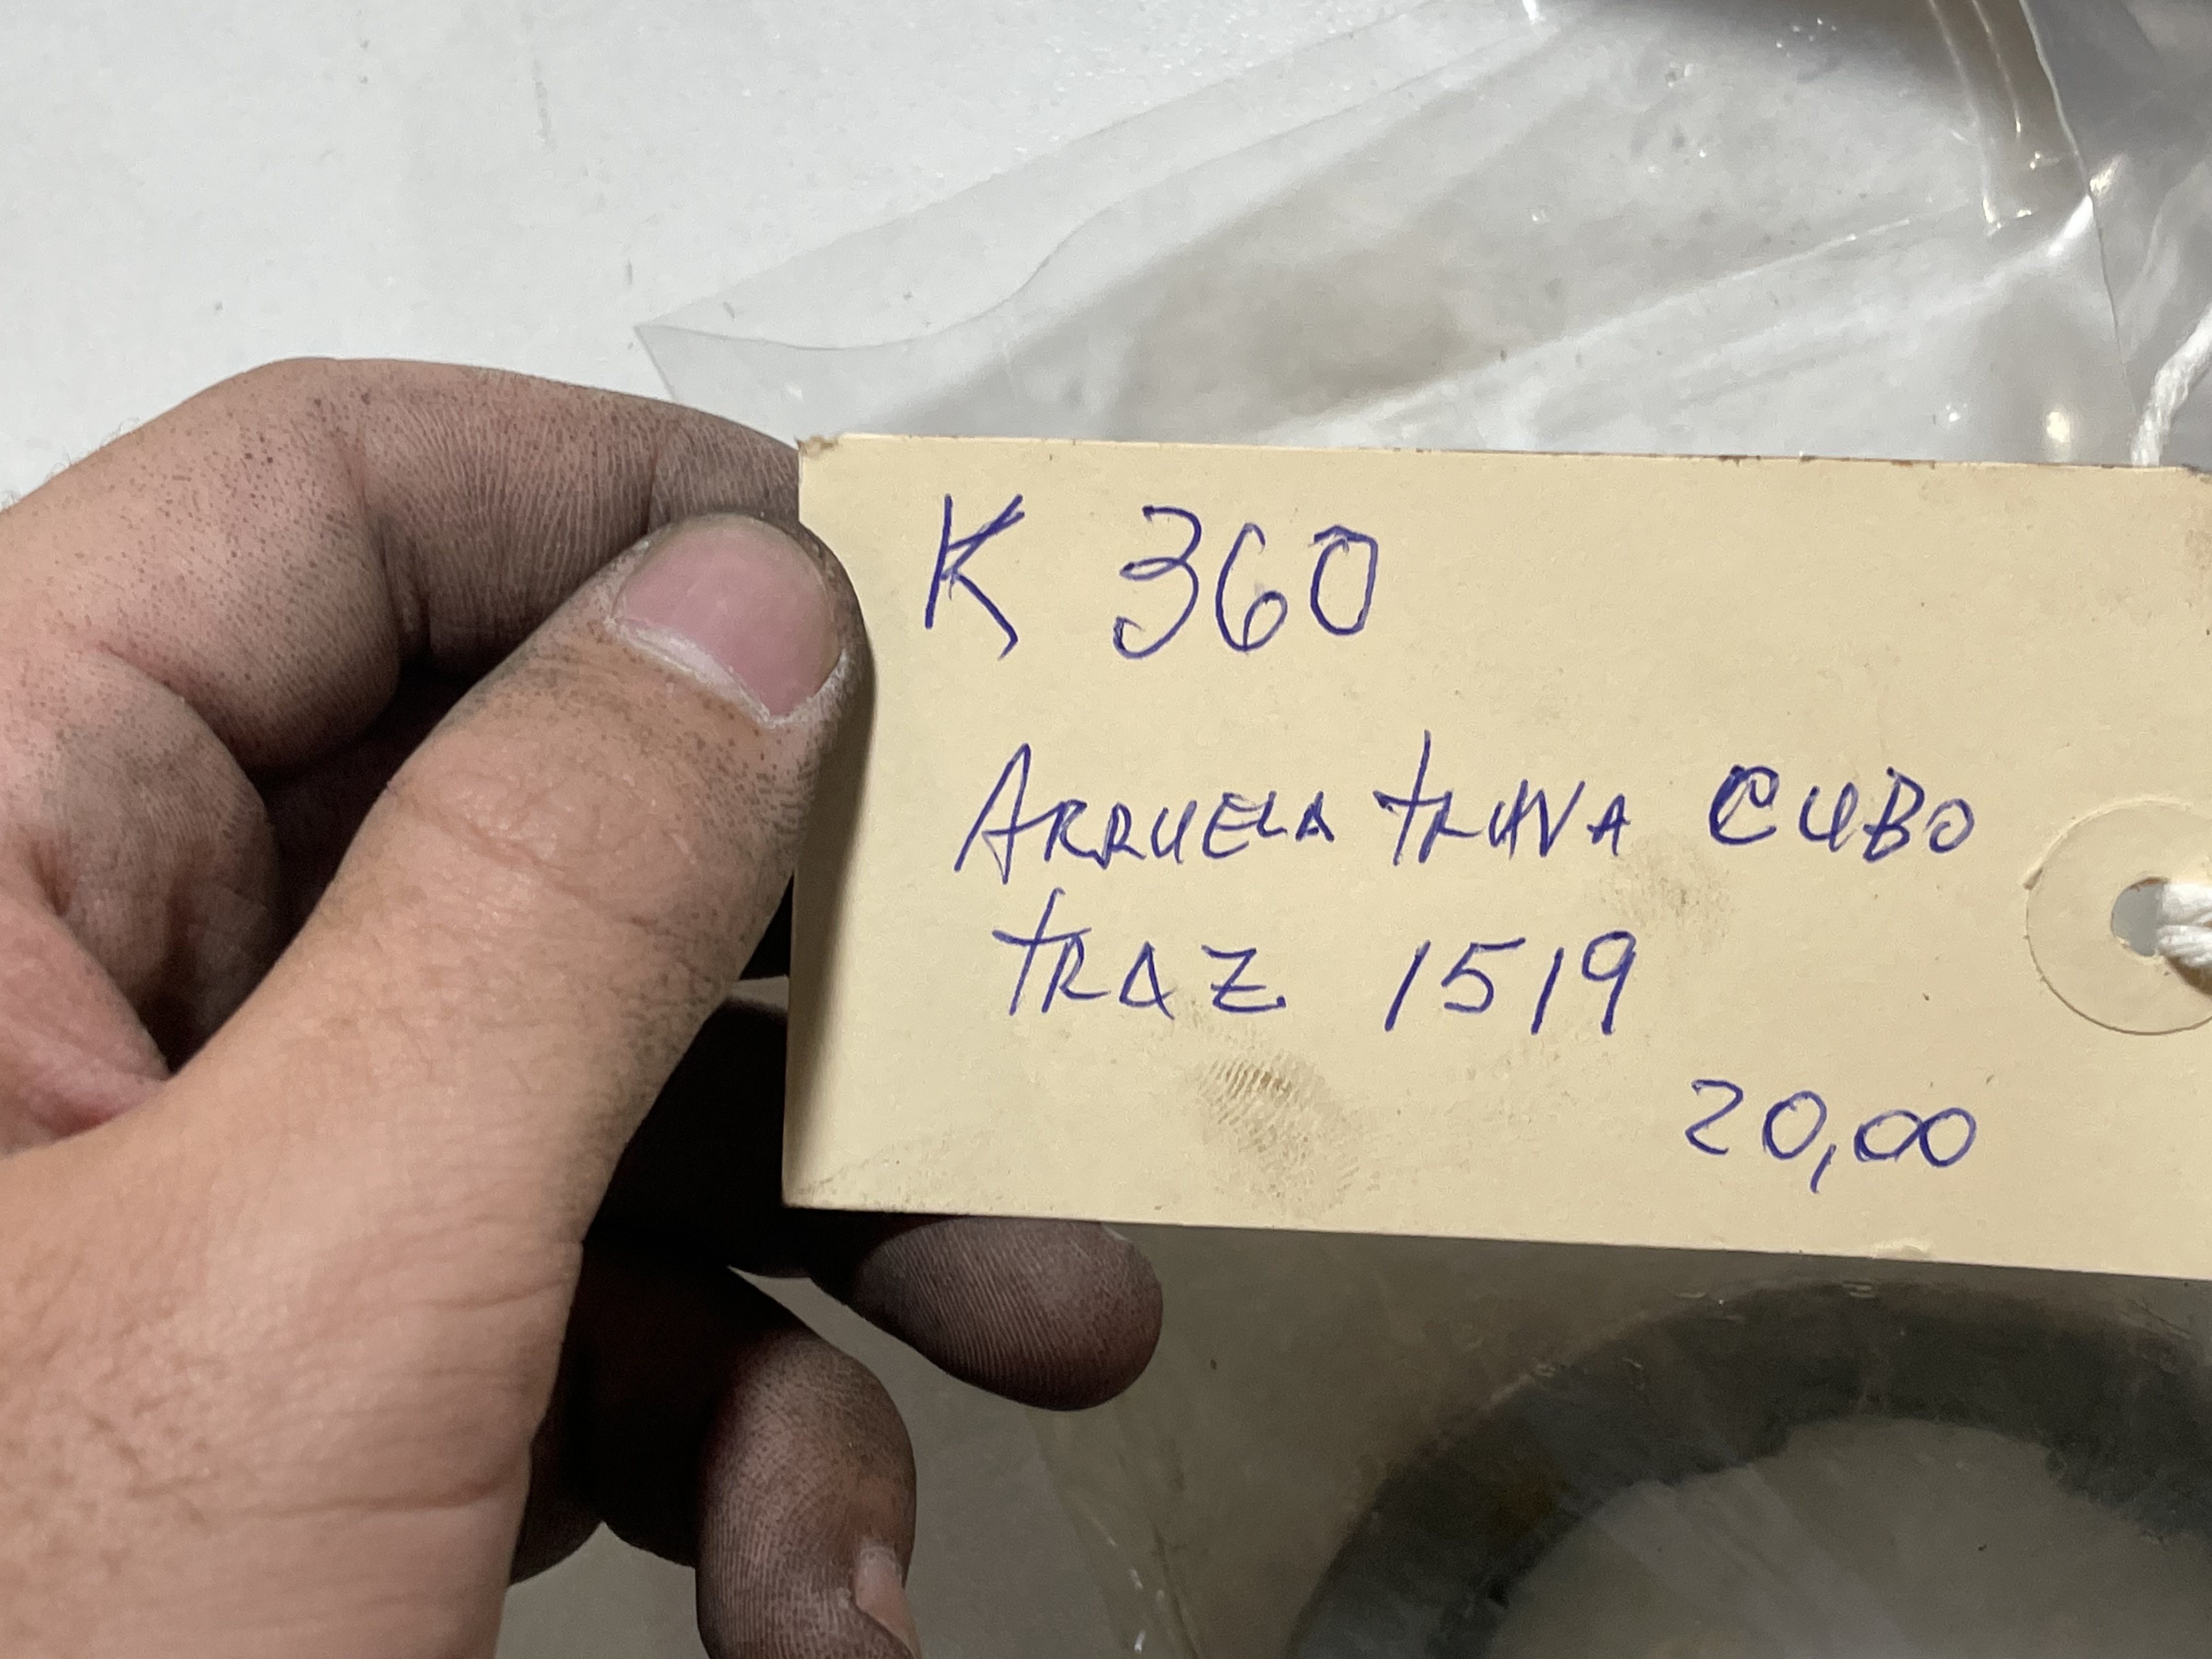 K 360
ARRUELA TRAVA CUBO
TRAZ 1519
20,00